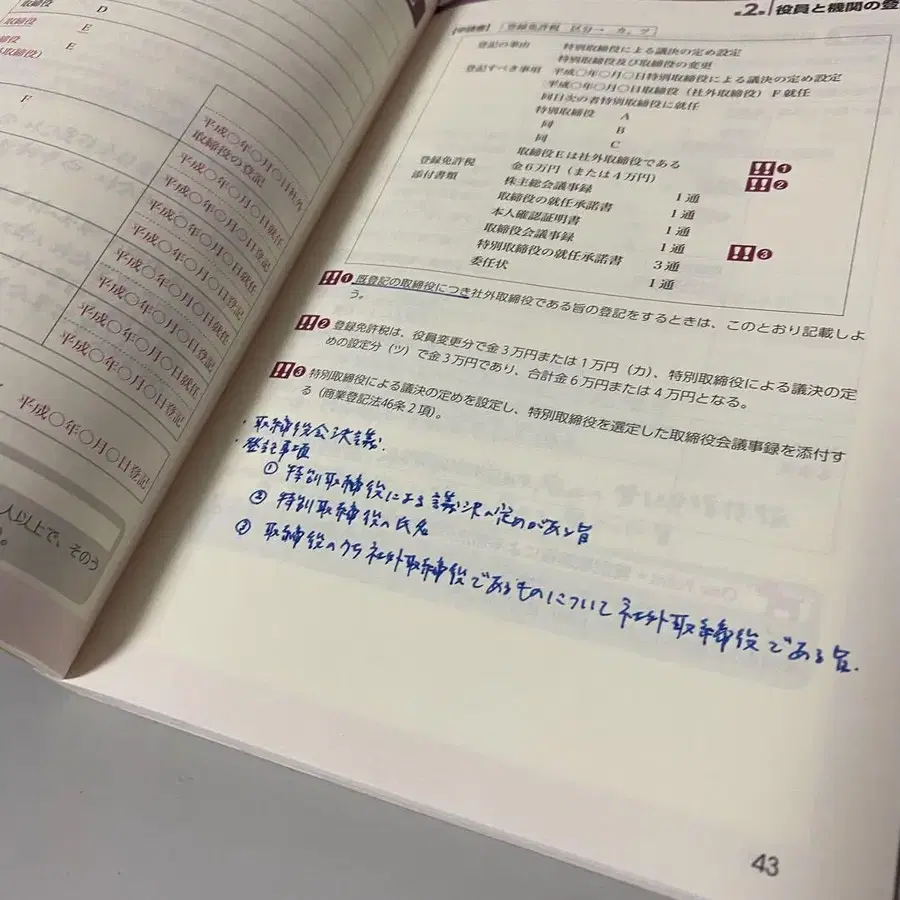 取締役 D
取締役 E
取締役 E
外取締役)
F
平成〇年〇月〇日社外
取締役の登記
平成〇年〇月〇日就任
平成〇年〇月〇日登記
平成〇年〇月〇日就任
平成〇年〇月〇日登記
平成〇年〇月〇日就任
平成〇年〇月〇日登記
平成〇年〇月〇日登記
人以上で、そのう
。
第2 役員と機関の登
【申請書】 登録免許税 区分→ カ、ツ
登記の事由 特別取締役による議決の定め設定
特別取締役及び取締役の変更
登記すべき事項 平成〇年〇月〇日特別取締役による議決の定め設定
平成〇年〇月〇日取締役(社外取締役)F就任
同日次の者特別取締役に就任
特別取締役 A
同 B
同 C
取締役Eは社外取締役である !!1
登録免許税 金6万円(または4万円) !!2
添付書類 株主総会議事録 1通
取締役の就任承諾書 1通
本人確認証明書 1通
取締役会議事録 1通 !!3
特別取締役の就任承諾書 3通
委任状 1通
!!1 既登記の取締役につき社外取締役である旨の登記をするときは、このとおり記載しよ
う。
!!2 登録免許税は、役員変更分で金3万円または1万円(カ)、特別取締役による議決の定
めの設定分(ツ)で金3万円であり、合計金6万円または4万円となる。
!!3 特別取締役による議決の定めを設定し、特別取締役を選定した取締役会議事録を添付す
る(商業登記法46条2項)。
・取締役会決議.
・登記事項
① 特別取締役による議決の定めがある旨
② 特別取締役の氏名
③ 取締役のうち社外取締役であるものについて社外取締役である旨.
43